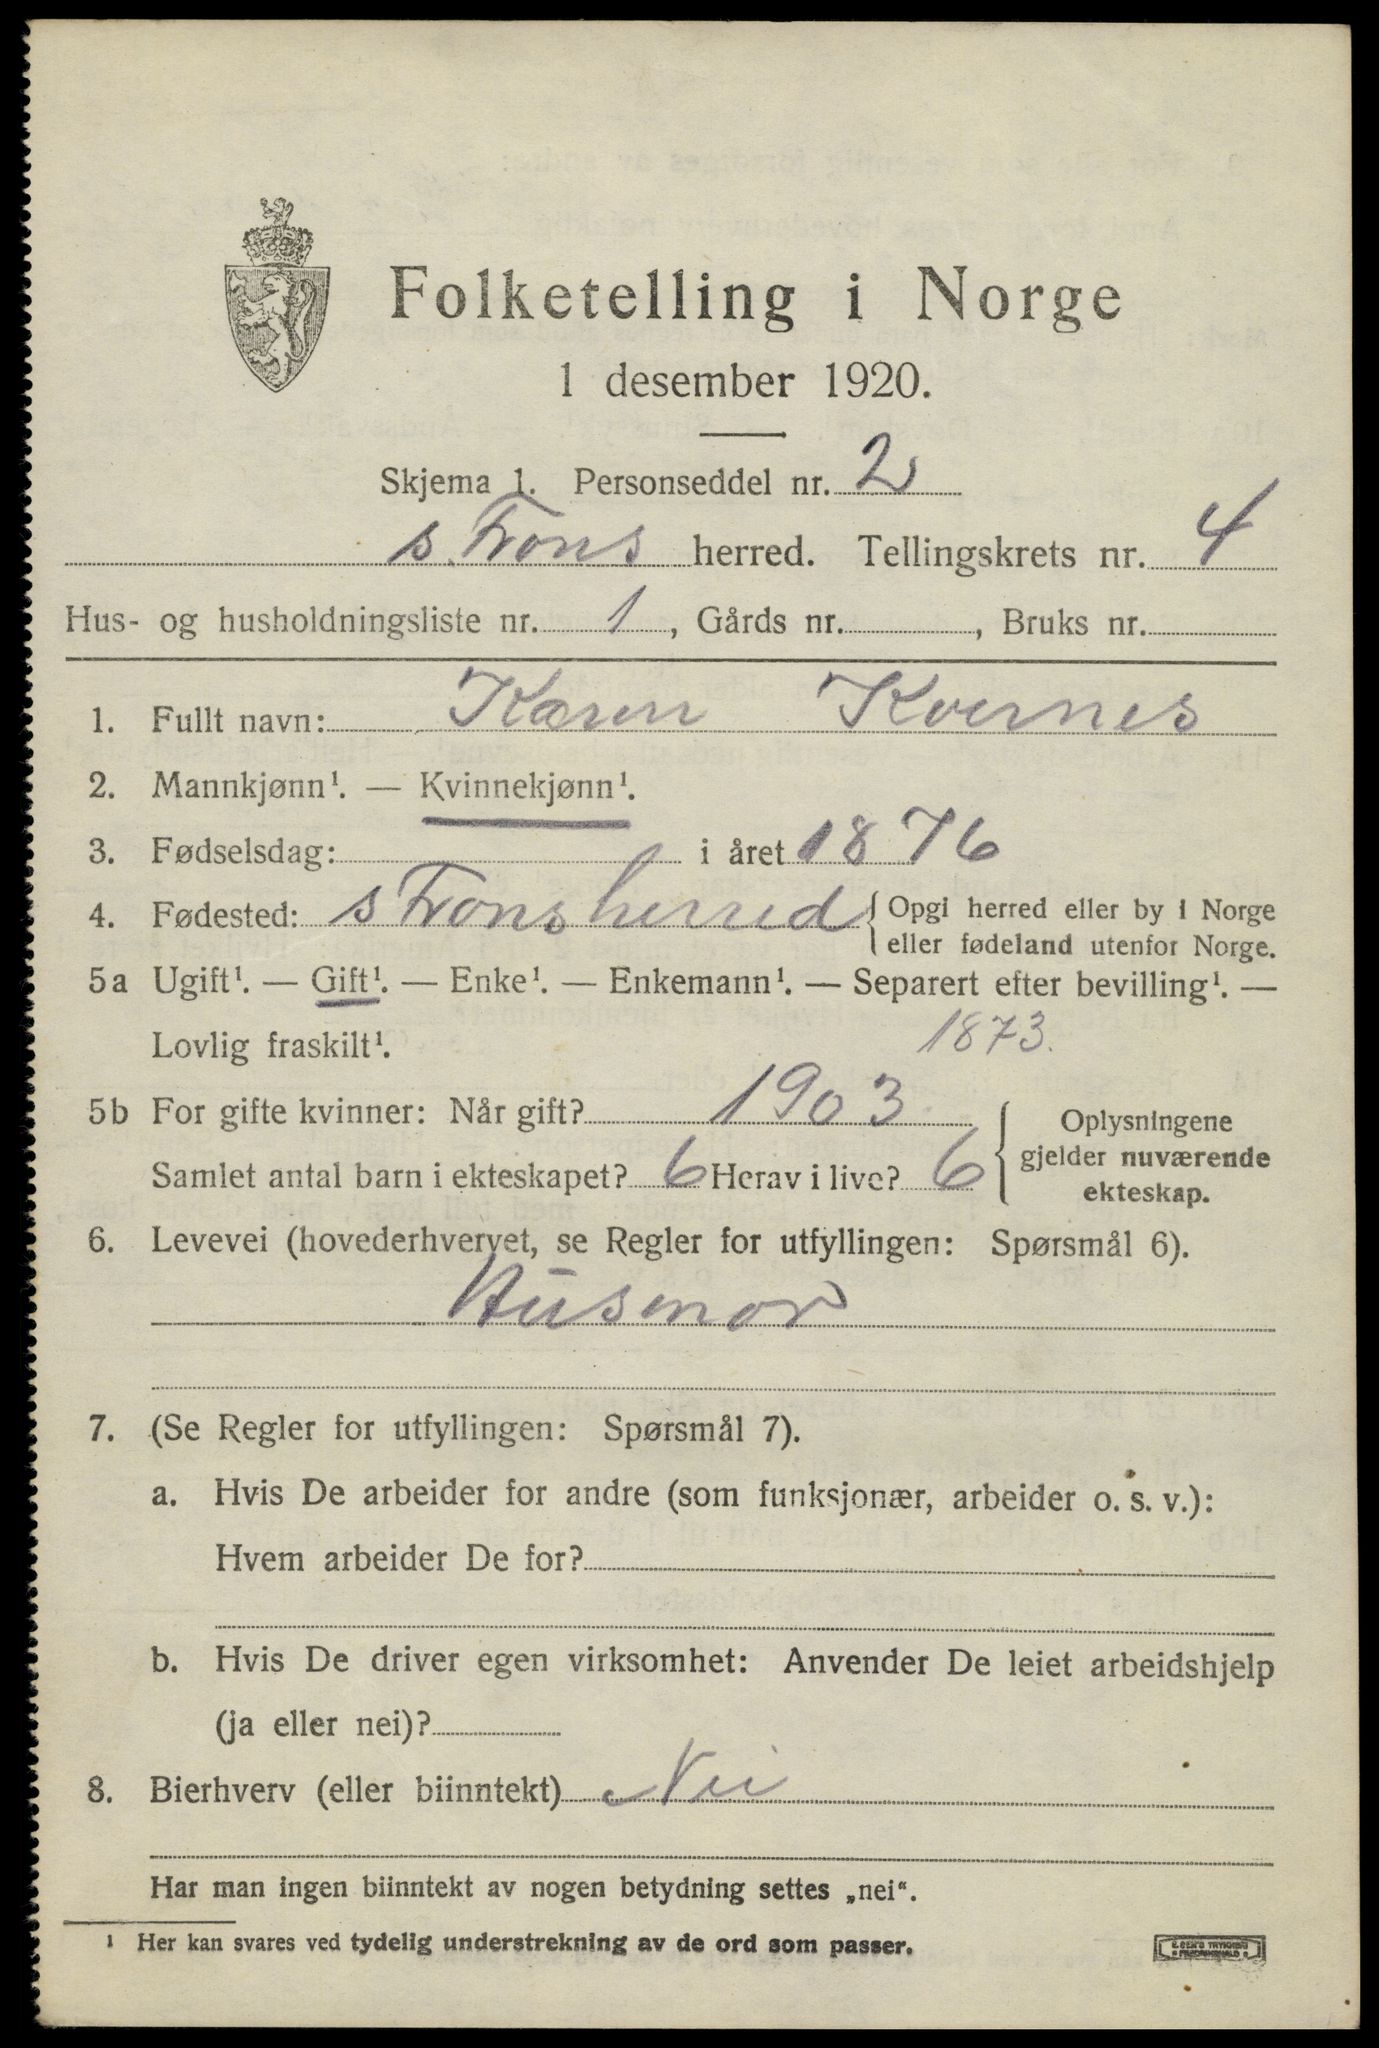 Folketelling i Norge
1 desember 1920.
Skjema 1. Personseddel nr. 2
s. Frons herred. Tellingskrets nr. 4
Hus- og husholdningsliste nr. 1, Gårds nr. , Bruks nr.
1. Fullt navn: Karen Kvernes
2. Mannkjønn¹. — Kvinnekjønn¹.
3. Fødselsdag: i året 1876
4. Fødested: s Frons herred { Opgi herred eller by i Norge
eller fødeland utenfor Norge.
5a Ugift¹. — Gift¹. — Enke¹. — Enkemann¹. — Separert efter bevilling¹. —
Lovlig fraskilt¹. 1873.
5b For gifte kvinner: Når gift? 1903 { Oplysningene
gjelder nuværende
ekteskap.
Samlet antal barn i ekteskapet? 6 Herav i live? 6
6. Levevei (hovederhvervet, se Regler for utfyllingen: Spørsmål 6).
Husmor
7. (Se Regler for utfyllingen: Spørsmål 7).
a. Hvis De arbeider for andre (som funksjonær, arbeider o. s. v.):
Hvem arbeider De for?
b. Hvis De driver egen virksomhet: Anvender De leiet arbeidshjelp
(ja eller nei)?
8. Bierhverv (eller biinntekt) Nei
Har man ingen biinntekt av nogen betydning settes „nei“.
¹ Her kan svares ved tydelig understrekning av de ord som passer.